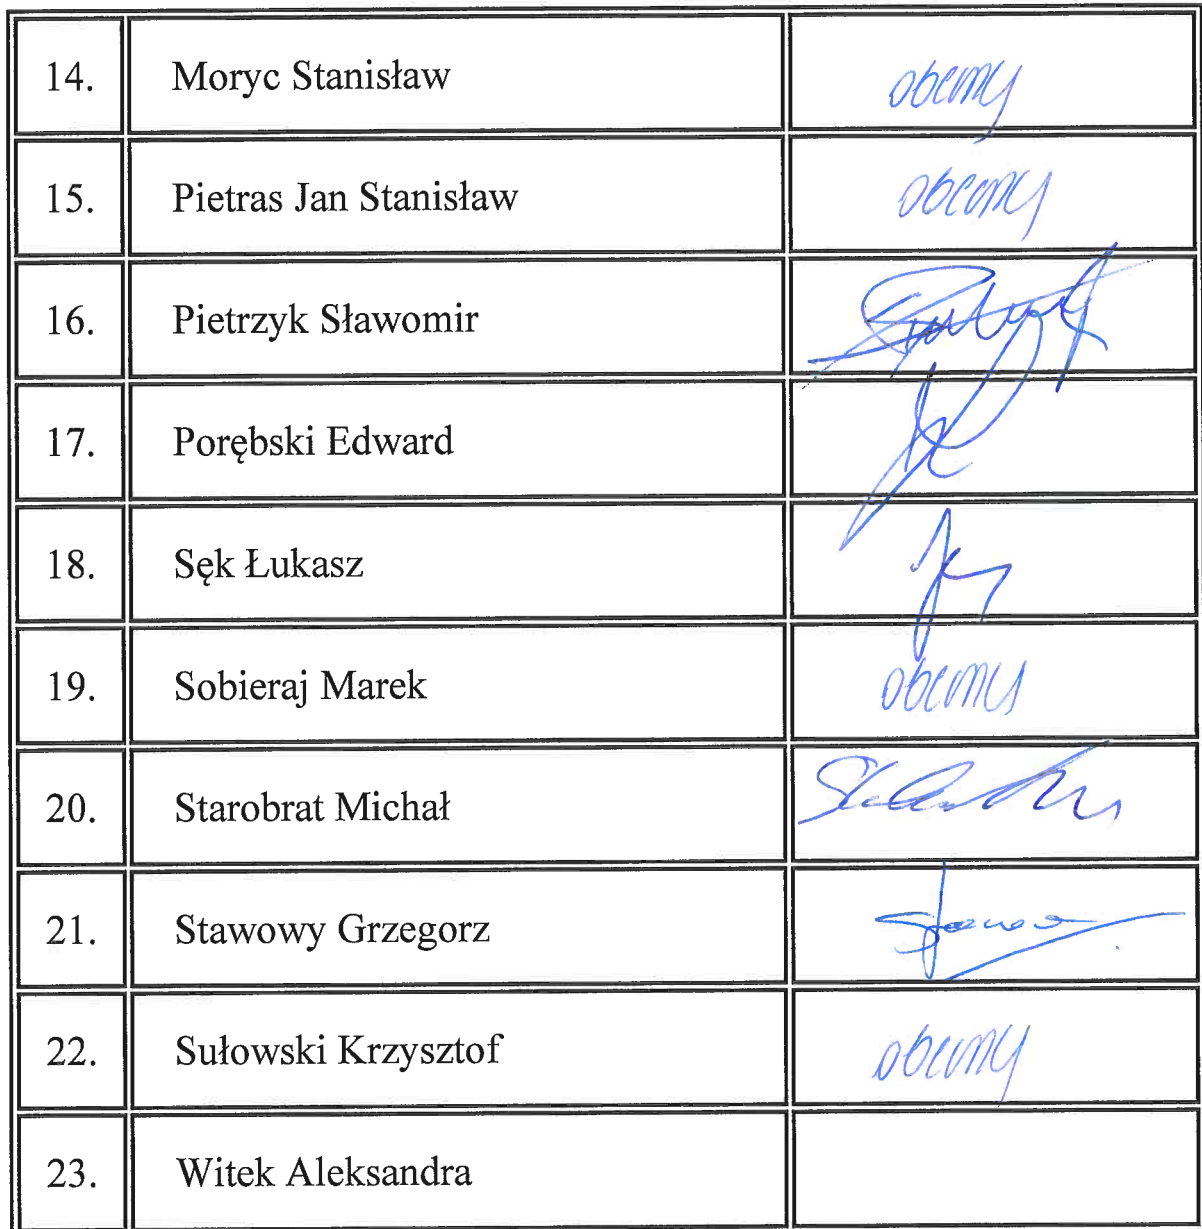 14. Moryc Stanisław obecny
15. Pietras Jan Stanisław obecny
16. Pietrzyk Sławomir
17. Porębski Edward
18. Sęk Łukasz
19. Sobieraj Marek obecny
20. Starobrat Michał
21. Stawowy Grzegorz
22. Sułowski Krzysztof obecny
23. Witek Aleksandra